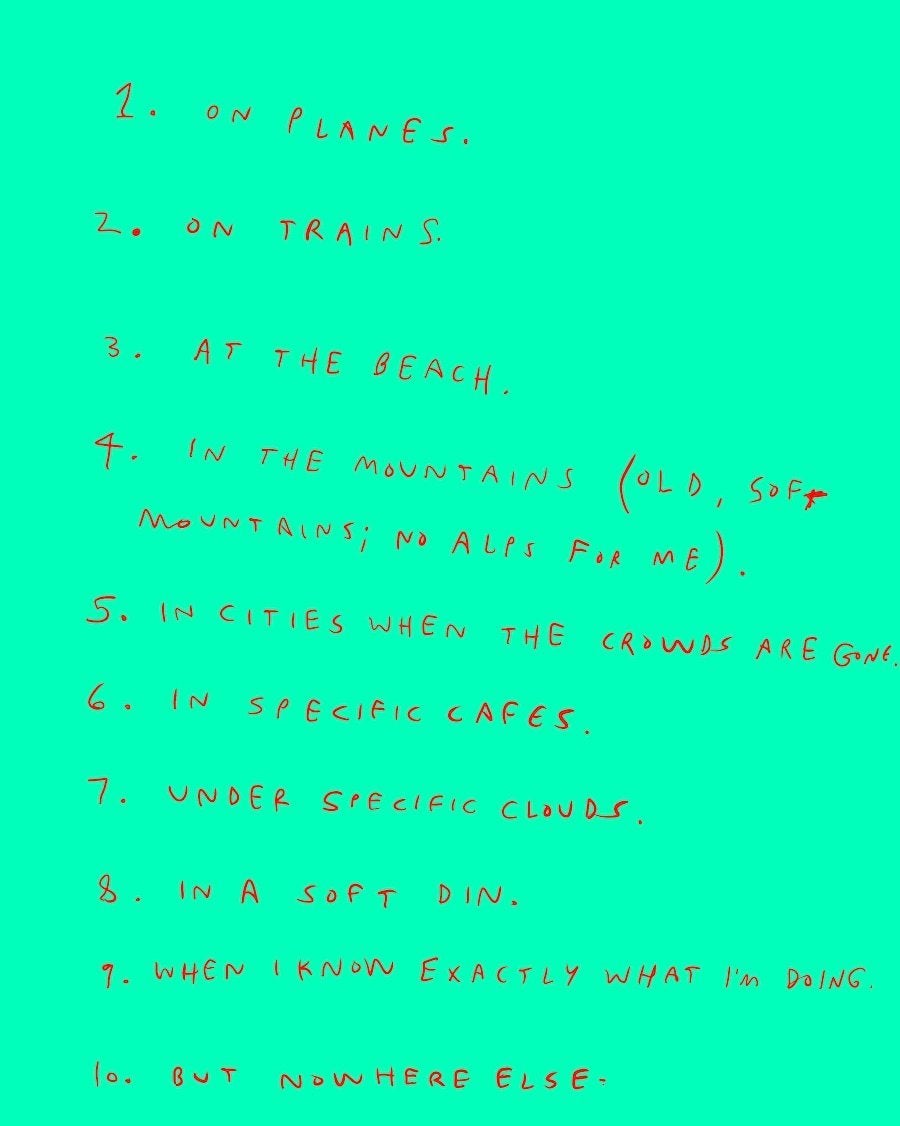 1. ON PLANES.
2. ON TRAINS.
3. AT THE BEACH.
4. IN THE MOUNTAINS (OLD, SOFT
MOUNTAINS; NO ALPS FOR ME).
5. IN CITIES WHEN THE CROWDS ARE GONE.
6. IN SPECIFIC CAFES.
7. UNDER SPECIFIC CLOUDS.
8. IN A SOFT DIN.
9. WHEN I KNOW EXACTLY WHAT I'M DOING.
10. BUT NOWHERE ELSE.